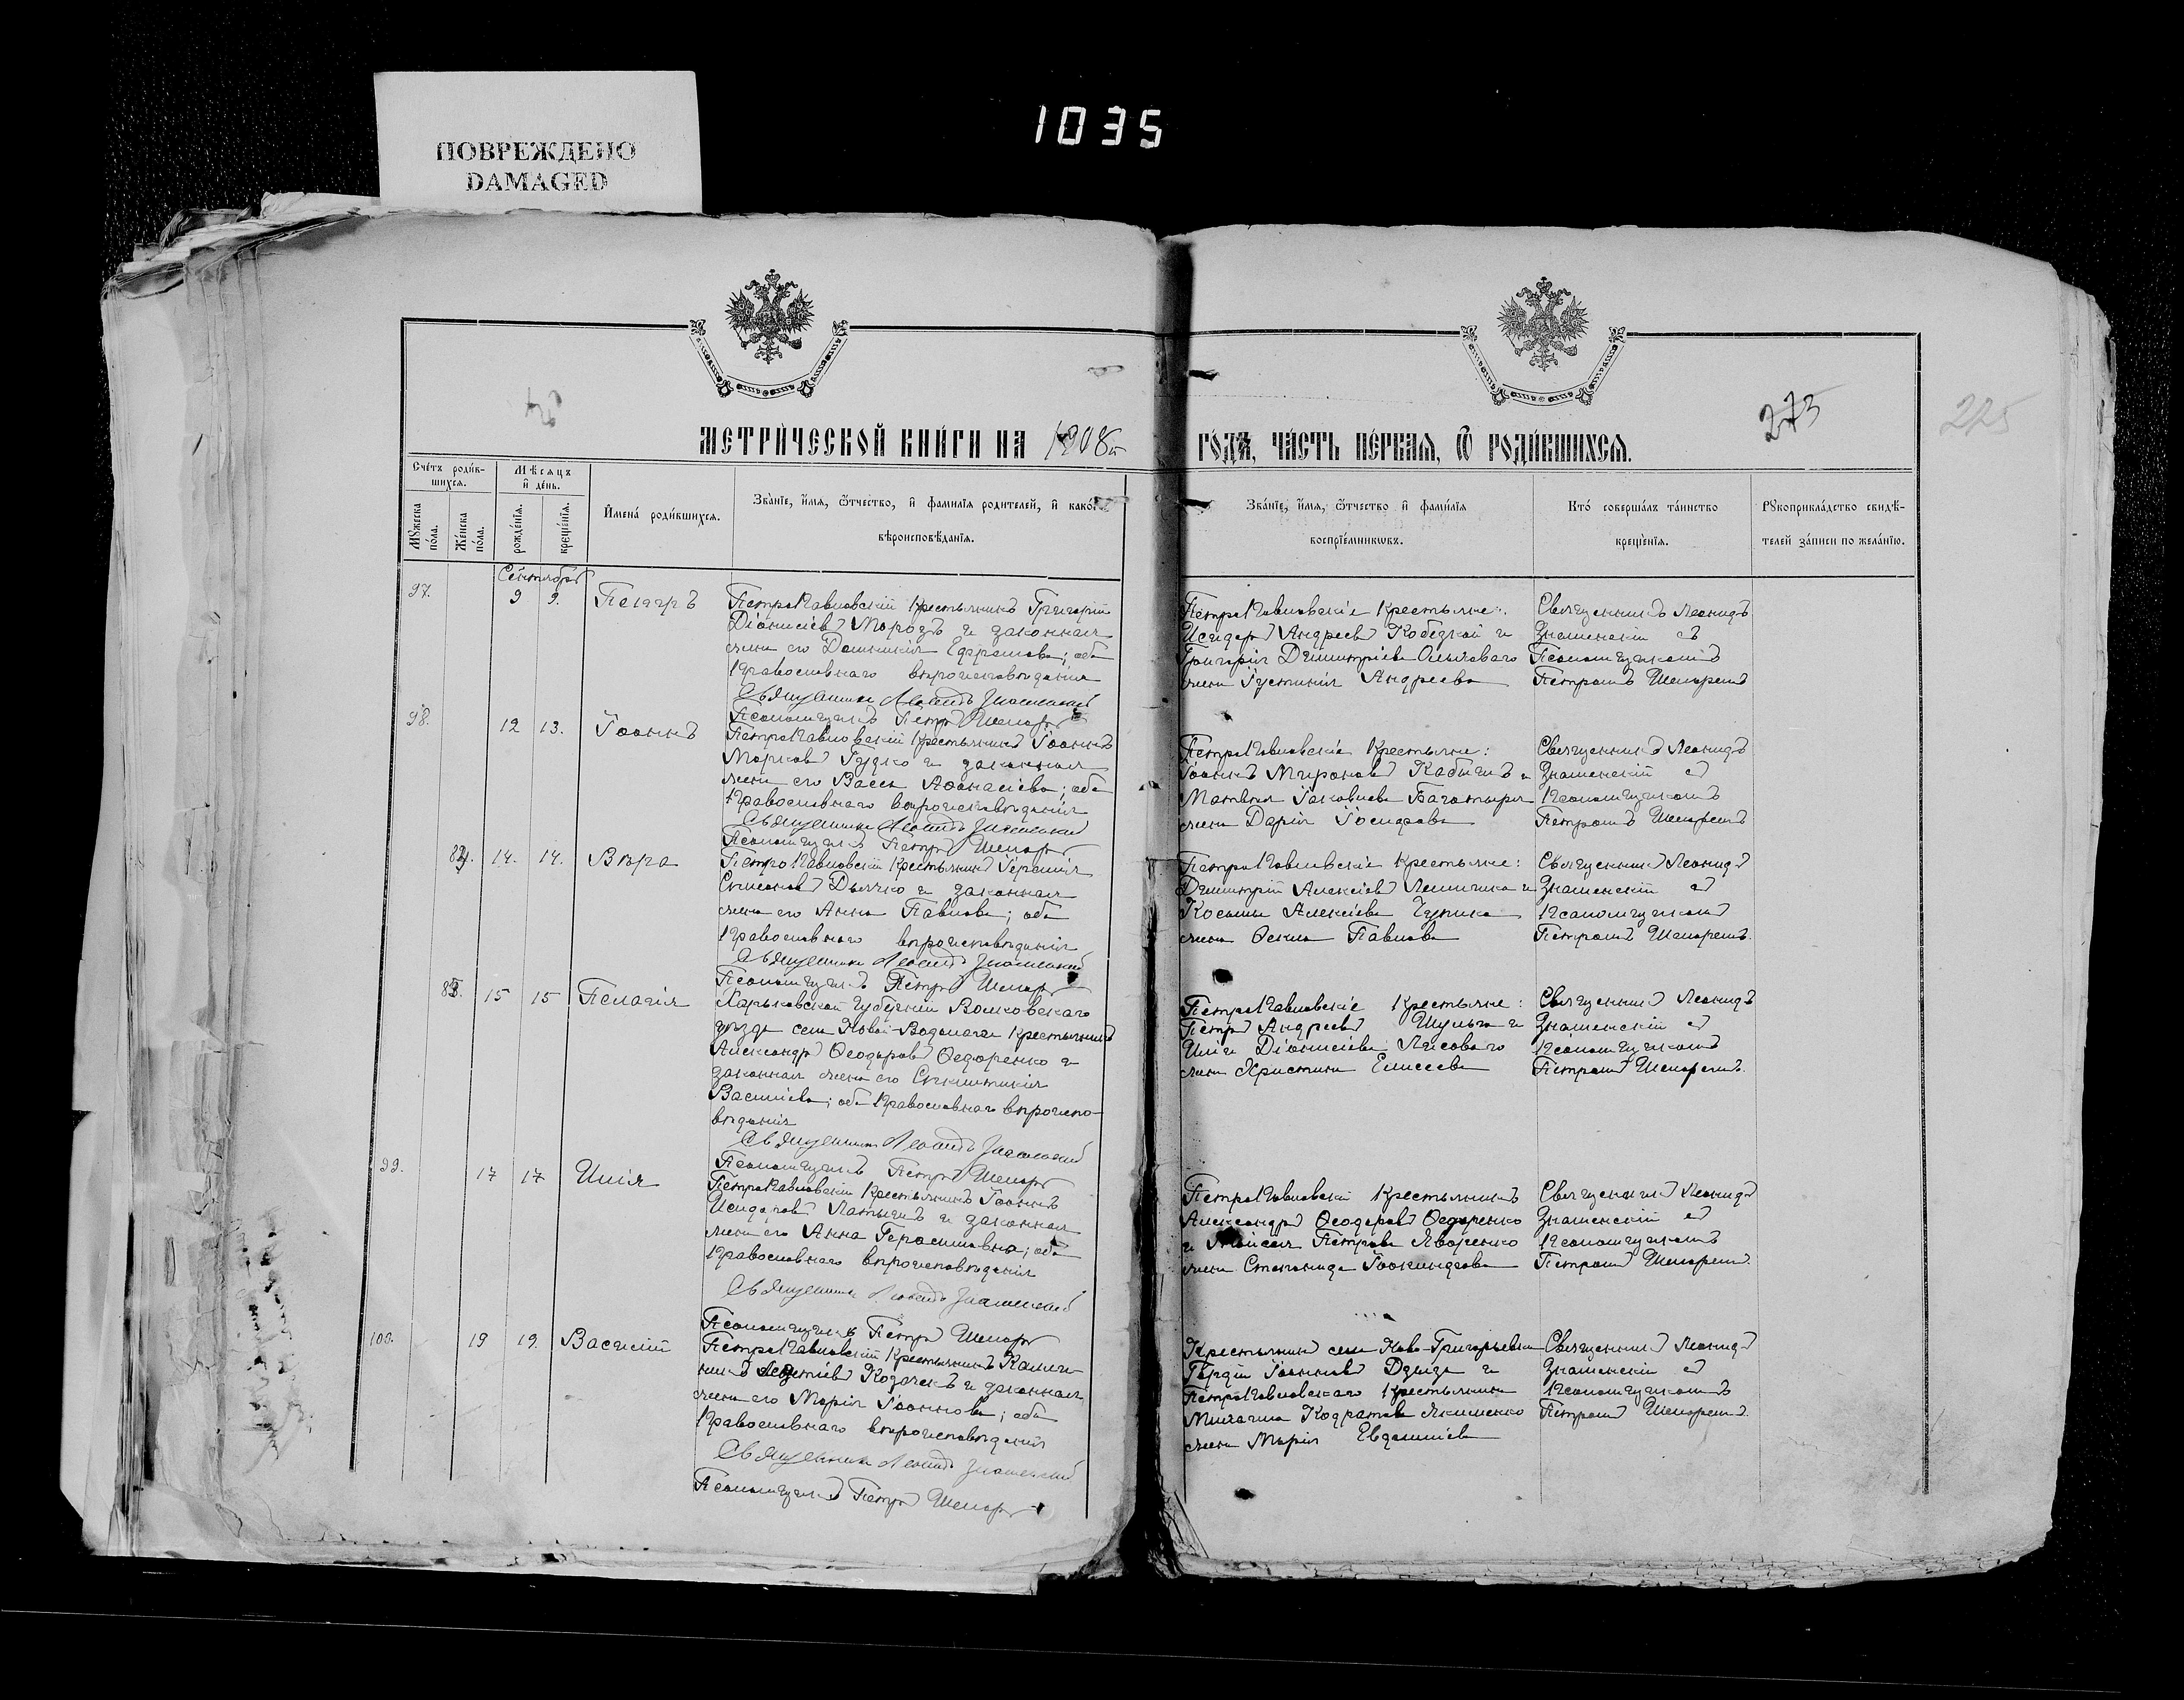 ПОВРЕЖДЕНО
DAMAGED
1035
МЕТРИ́ЧЕСКОЙ КНИ́ГИ НА 1908 ГО́ДЪ, ЧА́СТЬ ПЕ́РВАЯ, Ѿ РОДИ́ВШИХСЯ.
273
225
Сче́тъ роди́в-
шихся.
Мꙋ́жеска по́ла.
Же́нска по́ла.
Мѣ́сяцъ
и҆ де́нь.
рожде́нїя.
креще́нїя.
И҆мена́ роди́вшихся.
Зва́нїе, и҆́мя, ѻ҆́тчество, и҆ фами́лїя родителей, и҆ како́гѡ
вѣроисповѣ́данїя.
Зва́нїе, и҆́мя, ѻ҆́тчество и҆ фами́лїя
воспрїе́мникѡвъ.
Кто́ соверша́лъ та́инство
креще́нїя.
Рꙋкоприкла́дство свидѣ́-
телей за́писи по жела́нїю.
Сентябрь
97. 9 9.
Петропавловскій крестьянинъ Григорій
Діонисіевъ Морозъ и законная
жена его Домникія Ефремова; оба
Православнаго вѣроисповѣданія
Священникъ Леонидъ Знаменскій
Псаломщикъ Петръ Шепаръ
Петропавловскіе крестьяне:
Исидоръ Андреевъ Кобецкой и
Григорія Димитріева
жена Іустинія Андреева
Священникъ Леонидъ
Знаменскій съ
Псаломщикомъ
Петромъ
98. 12 13. Іоаннъ
Петропавловскій крестьянинъ Іоаннъ
Марковъ Гудко и законная
жена его Васса Аѳанасіева; оба
Православнаго вѣроисповѣданія
Священникъ Леонидъ Знаменскій
Псаломщикъ Петръ
Петропавловскіе крестьяне:
Іоаннъ Мироновъ и
Матвѣя Іаковлева Багатыря
жена Дарія Іосифова
Священникъ Леонидъ
Знаменскій съ
Псаломщикомъ
Петромъ
84. 14. 14. Вѣра
Петропавловскій крестьянинъ Герасимъ
Симеоновъ Дьячко и законная
жена его Анна Павлова; оба
Православнаго вѣроисповѣданія
Священникъ Леонидъ Знаменскій
Псаломщикъ Петръ
Петропавловскіе крестьяне:
Димитрій Алексіевъ и
Космы Алексіева Чуприна
жена Ѳекла Павлова
Священникъ Леонидъ
Знаменскій съ
Псаломщикомъ
Петромъ
85. 15 15 Пелагія
Харьковской губерніи Волковскаго
уѣзда села Новой-Водолаги крестьянинъ
Александръ Ѳеодоровъ Ѳедоренко и
законная жена его
Василіева; оба Православнаго вѣроиспо-
вѣданія
Священникъ Леонидъ Знаменскій
Псаломщикъ Петръ
Петропавловскіе крестьяне:
Петръ Андреевъ Шульга и
Иліи Діонисіева Лисоваго
жена Христина Елисеева
Священникъ Леонидъ
Знаменскій съ
Псаломщикомъ
Петромъ
99. 17 17 Илія
Петропавловскій крестьянинъ Іоаннъ
Исидоровъ Латышъ и законная
жена его Анна Герасимовна; оба
Православнаго вѣроисповѣданія
Священникъ Леонидъ Знаменскій
Псаломщикъ Петръ
Петропавловскій крестьянинъ
Александръ Ѳеодоровъ Ѳедоренко
и Моисея Петрова Яворенко
жена Стефанида
Священникъ Леонидъ
Знаменскій съ
Псаломщикомъ
Петромъ
100. 19 19. Василій
Петропавловскій крестьянинъ Калин-
никъ Козачекъ и законная
жена его Марія Іоаннова; оба
Православнаго вѣроисповѣданія
Священникъ Леонидъ Знаменскій
Псаломщикъ Петръ
Крестьянинъ села Ново-Григорьевки
Гордій Іоанновъ Дзюдзь и
Петропавловскаго крестьянина
Михаила Кодратова Якименко
жена Марія Евдокимова
Священникъ Леонидъ
Знаменскій съ
Псаломщикомъ
Петромъ